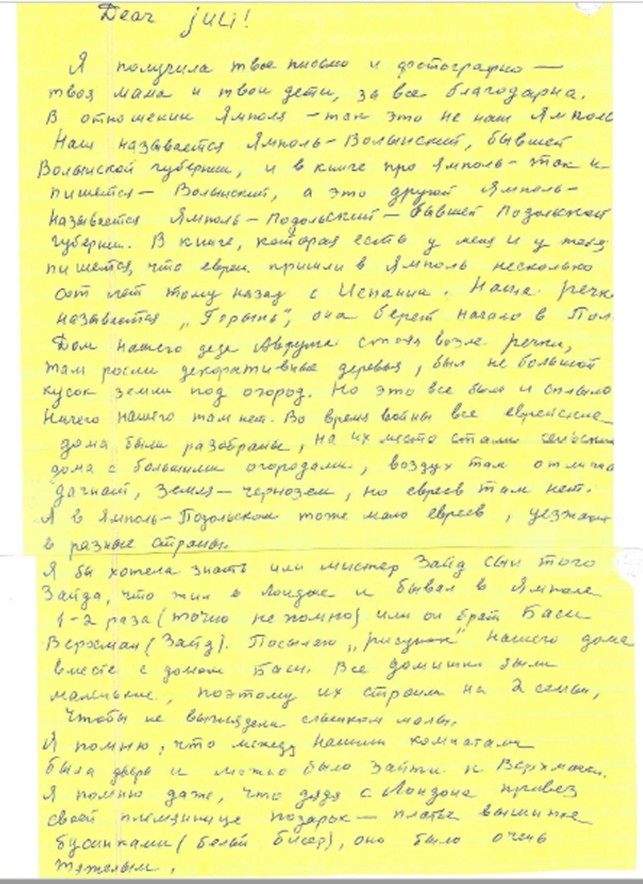 Dear juli!
Я получила твое письмо и фотографию —
твоя мама и твои дети, за все благодарна.
В отношении Ямполя — так это не наш Ямполь
Наш называется Ямполь-Волынский, бывшей
Волынской губернии, и в книге про Ямполь- так и
пишется — Волынский, а это другой Ямполь-
называется Ямполь-Подольский — бывшей Подольской
губернии. В книге, которая есть у меня и у тебя
пишется, что евреи пришли в Ямполь несколько
сот лет тому назад с Испании. Наша речка
называется „Горынь", она берет начало в Пол
Дом нашего деда Аврума стоял возле речки,
там росли декоративные деревья, был не большой
кусок земли под огород. Но это все было и сплыло
Ничего нашего там нет. Во время войны все еврейские
дома были разобраны, на их место стали сельские
дома с большими огородами, воздух там отлича
дачный, земля — чернозем, но евреев там нет.
А в Ямполь-Подольском тоже мало евреев, уезжают
в разные страны.
Я бы хотела знать или мистер Зайд сын того
Зайда, что жил в Лондоне и бывал в Ямполе
1-2 раза (точно не помню) или он брат Баси
Верхман (Зайд). Посылаю „рисунок" нашего дома
вместе с домом Баси. Все домишки были
маленькие, поэтому их строили на 2 семьи,
чтобы не выглядели слишком малы.
Я помню, что между нашими комнатами
была дверь и можно было зайти к Верхманам.
Я помню даже, что дядя с Лондона привез
своей племяннице подарок — платье вышитое
бусинками (белый бисер), оно было очень
тяжелым.